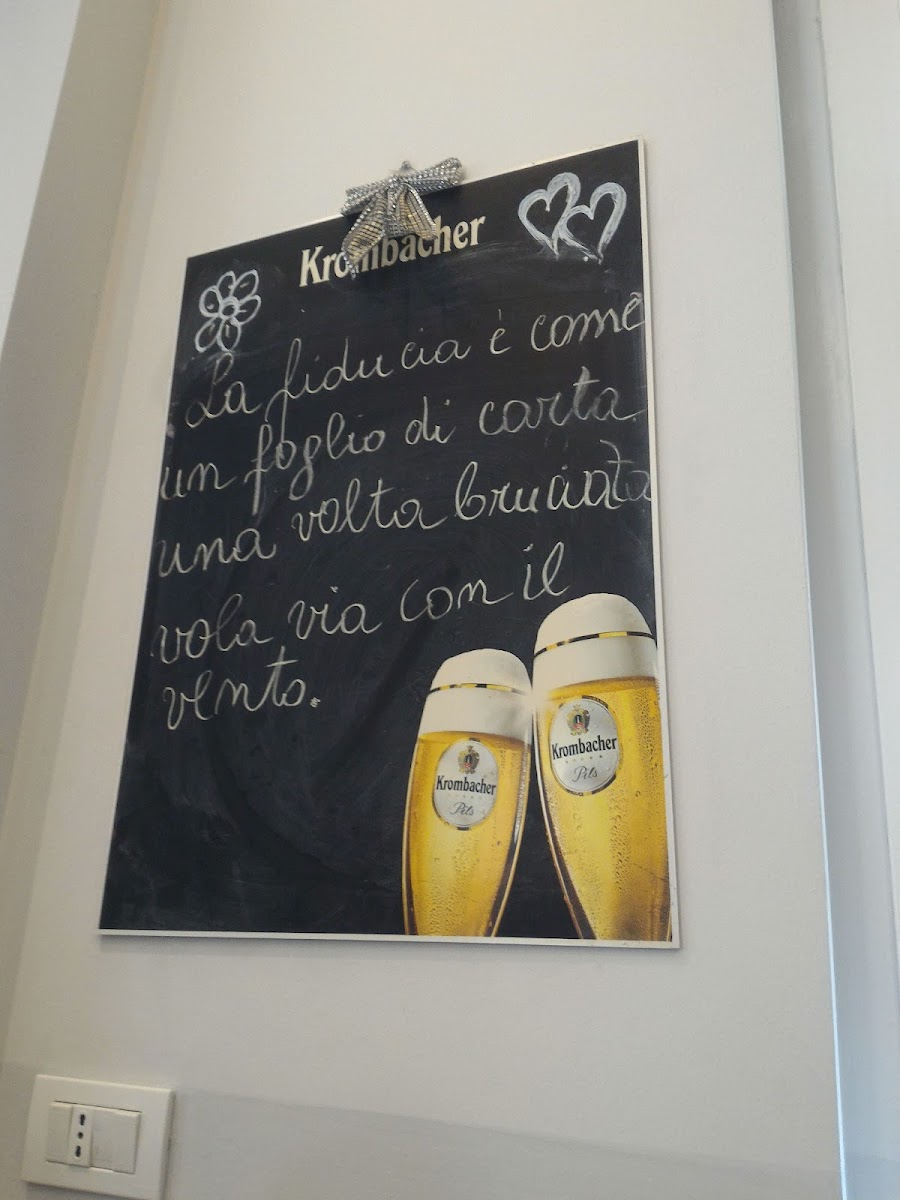 Krombacher
La fiducia è come
un foglio di carta
una volta bruciata
vola via con il
vento.
Krombacher
Pils
Krombacher
Pils